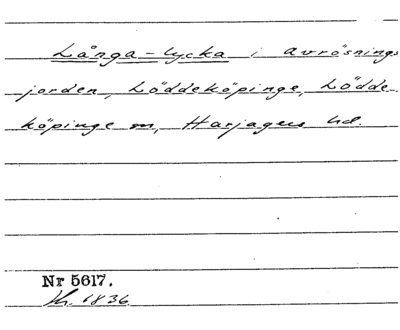 Långa-lycka i avrösnings
jorden, Löddeköpinge, Lödde-
köpinge sn, Harjagers hd.
Nr 5617.
1836